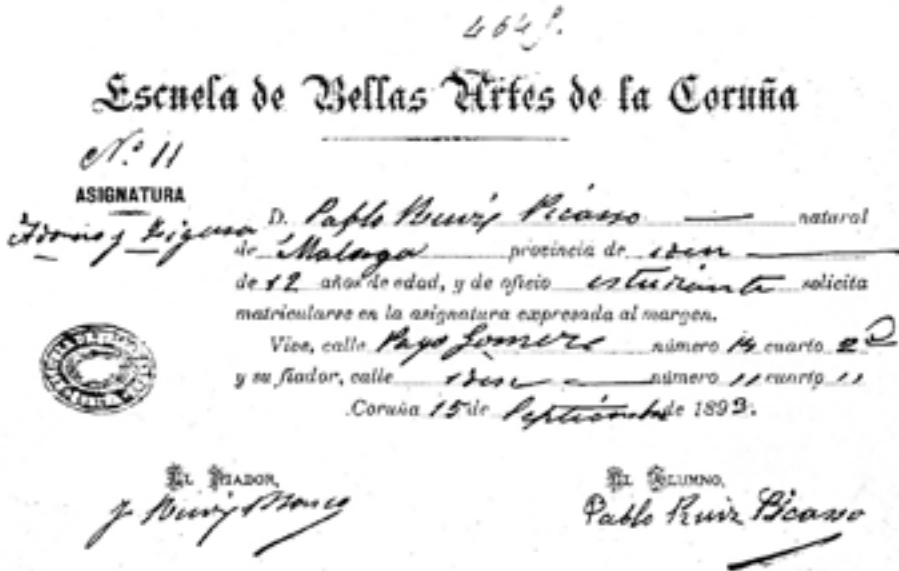 464
Escuela de Bellas Artes de la Coruña
Nº 11
ASIGNATURA
Adorno y Figura
D. Pablo Ruiz Picasso natural
de Malaga provincia de idem
de 12 años de edad, y de oficio estudiante solicita
matricularse en la asignatura expresada al margen.
Vive, calle Payo Gomez número 14 cuarto 2º
y su fiador, calle idem número 11 cuarto 11
Coruña 15 de Septiembre de 1893.
EL FIADOR,
J Ruiz Blasco
EL ALUMNO,
Pablo Ruiz Picasso